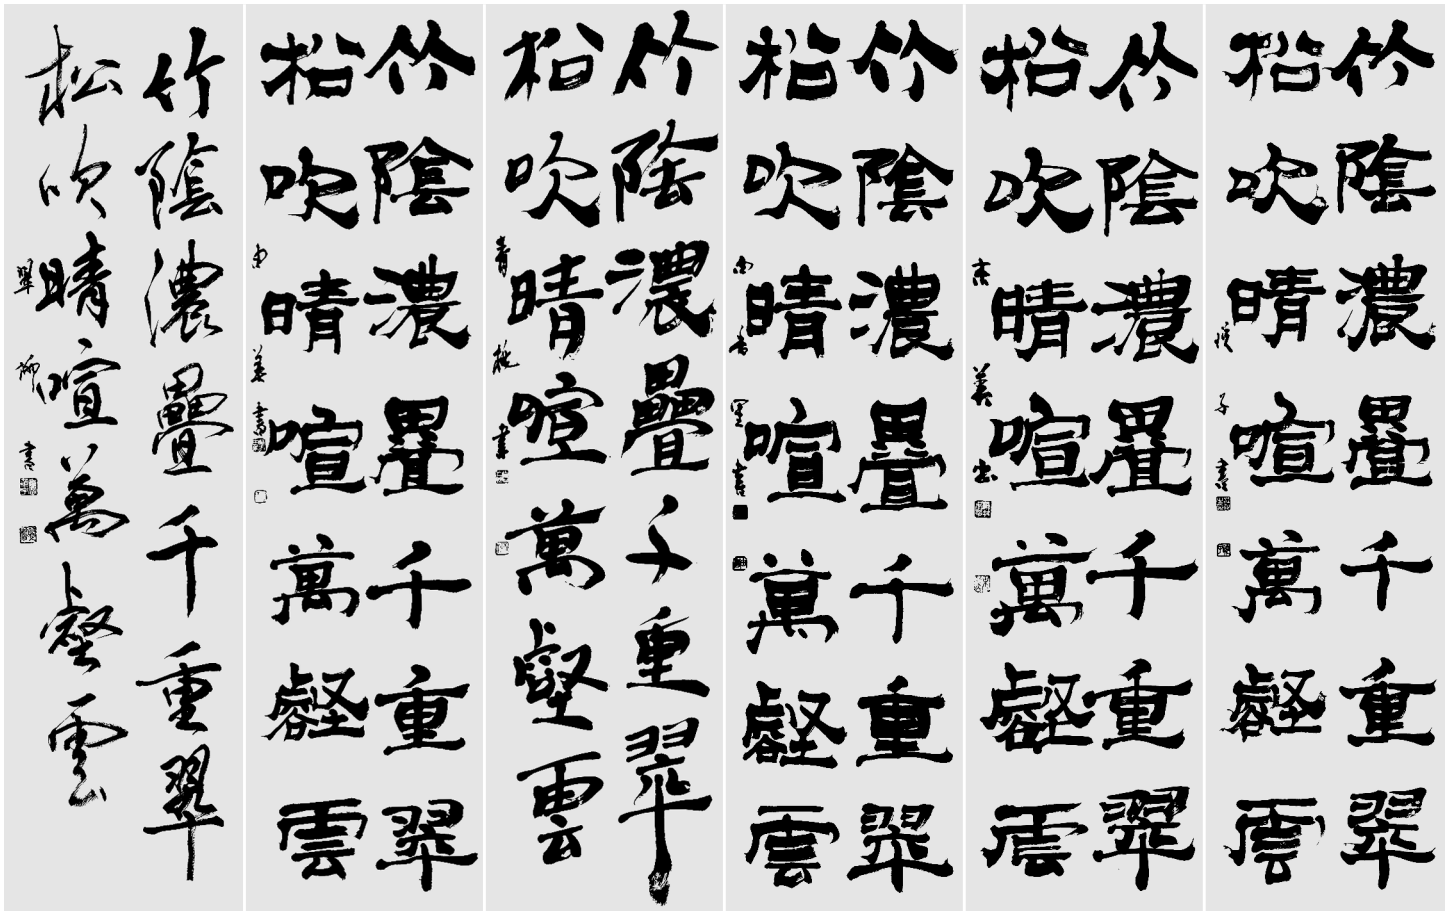 竹陰濃疊千重翠
松吹晴喧萬壑雲
竹陰濃疊千重翠
松吹晴喧萬壑雲
竹陰濃疊千重翠
松吹晴喧萬壑雲
竹陰濃疊千重翠
松吹晴喧萬壑雲
竹陰濃疊千重翠
松吹晴喧萬壑雲
竹陰濃疊千重翠
松吹晴喧萬壑雲
翠柳書